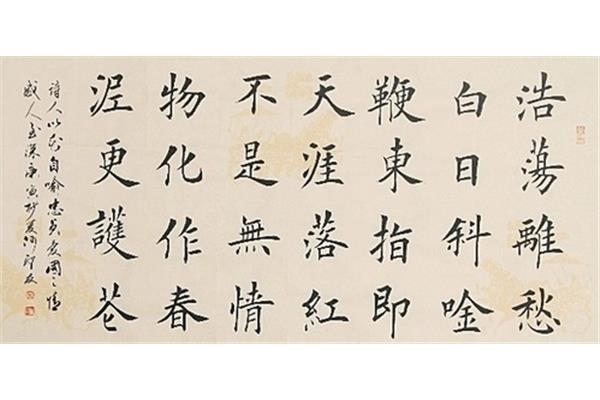 浩蕩離愁
白日斜唫
鞭東指即
天涯落紅
不是無情
物化作春
泥更護花
詩人以花自喻忠貞愛國之情
感人至深庚寅